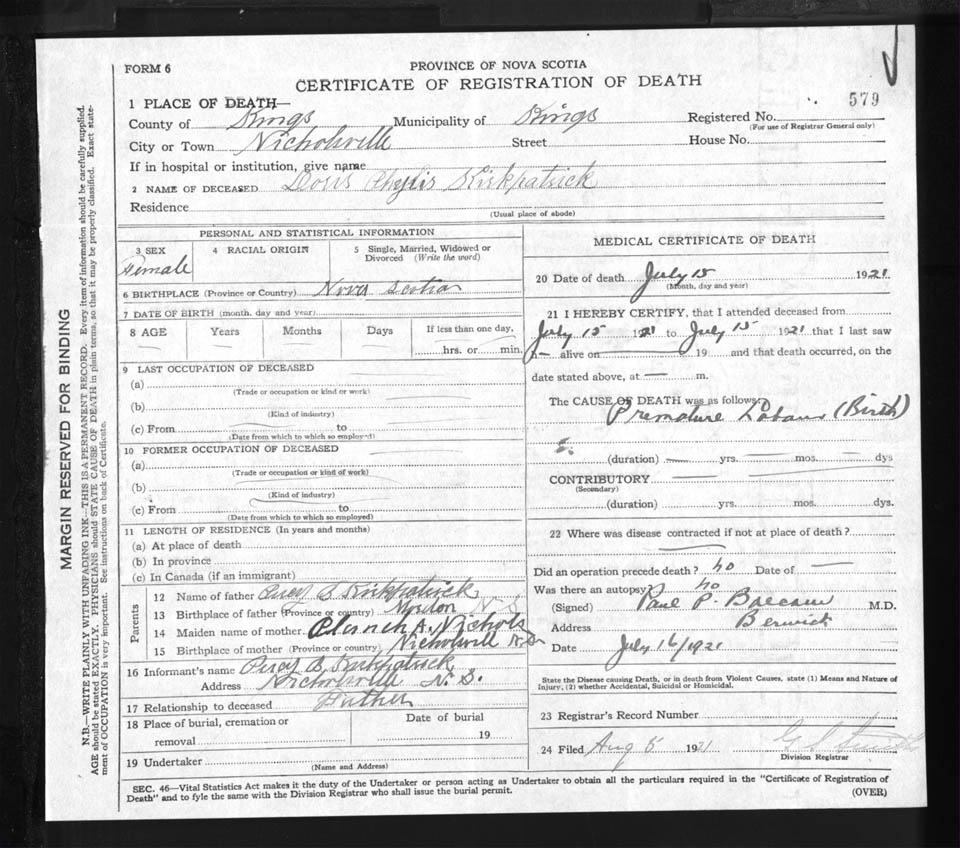 FORM 6
PROVINCE OF NOVA SCOTIA
CERTIFICATE OF REGISTRATION OF DEATH
579
1 PLACE OF DEATH—
County of Kings Municipality of Kings Registered No.
(For use of Registrar General only)
City or Town Nicholsville Street House No.
If in hospital or institution, give name
2 NAME OF DECEASED Doris Phyllis Kirkpatrick
Residence
(Usual place of abode)
PERSONAL AND STATISTICAL INFORMATION
3 SEX 4 RACIAL ORIGIN 5 Single, Married, Widowed or Divorced (Write the word)
Female
6 BIRTHPLACE (Province or Country) Nova Scotia
7 DATE OF BIRTH (month, day and year)
8 AGE Years Months Days If less than one day,
hrs. or min.
9 LAST OCCUPATION OF DECEASED
(a)
(Trade or occupation or kind or work)
(b)
(Kind of industry)
(c) From to
(Date from which to which so employed)
10 FORMER OCCUPATION OF DECEASED
(a)
(Trade or occupation or kind of work)
(b)
(Kind of industry)
(c) From to
(Date from which to which so employed)
11 LENGTH OF RESIDENCE (In years and months)
(a) At place of death
(b) In province
(c) In Canada (if an immigrant)
Parents
12 Name of father Percy B Kirkpatrick
13 Birthplace of father (Province or country) N S
14 Maiden name of mother A. Nichols
15 Birthplace of mother (Province or country) Nicholsvill N.S.
16 Informant's name Percy B. Kirkpatrick
Address Nicholsville N. S.
17 Relationship to deceased Father
18 Place of burial, cremation or Date of burial
removal 19
19 Undertaker
(Name and Address)
MEDICAL CERTIFICATE OF DEATH
20 Date of death July 15 1921
(Month, day and year)
21 I HEREBY CERTIFY, that I attended deceased from
July 15 1921 to July 15 1921 that I last saw
h— alive on 19 and that death occurred, on the
date stated above, at — m.
The CAUSE OF DEATH was as follows:
Premature Labour (Birth)
(duration) yrs. mos. dys
CONTRIBUTORY
(Secondary)
(duration) yrs. mos. dys.
22 Where was disease contracted if not at place of death?
Did an operation precede death? no Date of —
Was there an autopsy no
(Signed) Paul P. M.D.
Address Berwick
Date July 16/1921
State the Disease causing Death, or in death from Violent Causes, state (1) Means and Nature of
Injury, (2) whether Accidental, Suicidal or Homicidal.
23 Registrar's Record Number
24 Filed Aug 5 1921
Division Registrar
SEC. 46—Vital Statistics Act makes it the duty of the Undertaker or person acting as Undertaker to obtain all the particulars required in the "Certificate of Registration of
Death" and to fyle the same with the Division Registrar who shall issue the burial permit.
(OVER)
MARGIN RESERVED FOR BINDING
N.B.—WRITE PLAINLY WITH UNFADING INK—THIS IS A PERMANENT RECORD. Every item of information should be carefully supplied.
AGE should be stated EXACTLY. PHYSICIANS should STATE CAUSE OF DEATH in plain terms, so that it may be properly classified. Exact state-
ment of OCCUPATION is very important. See instructions on back of Certificate.